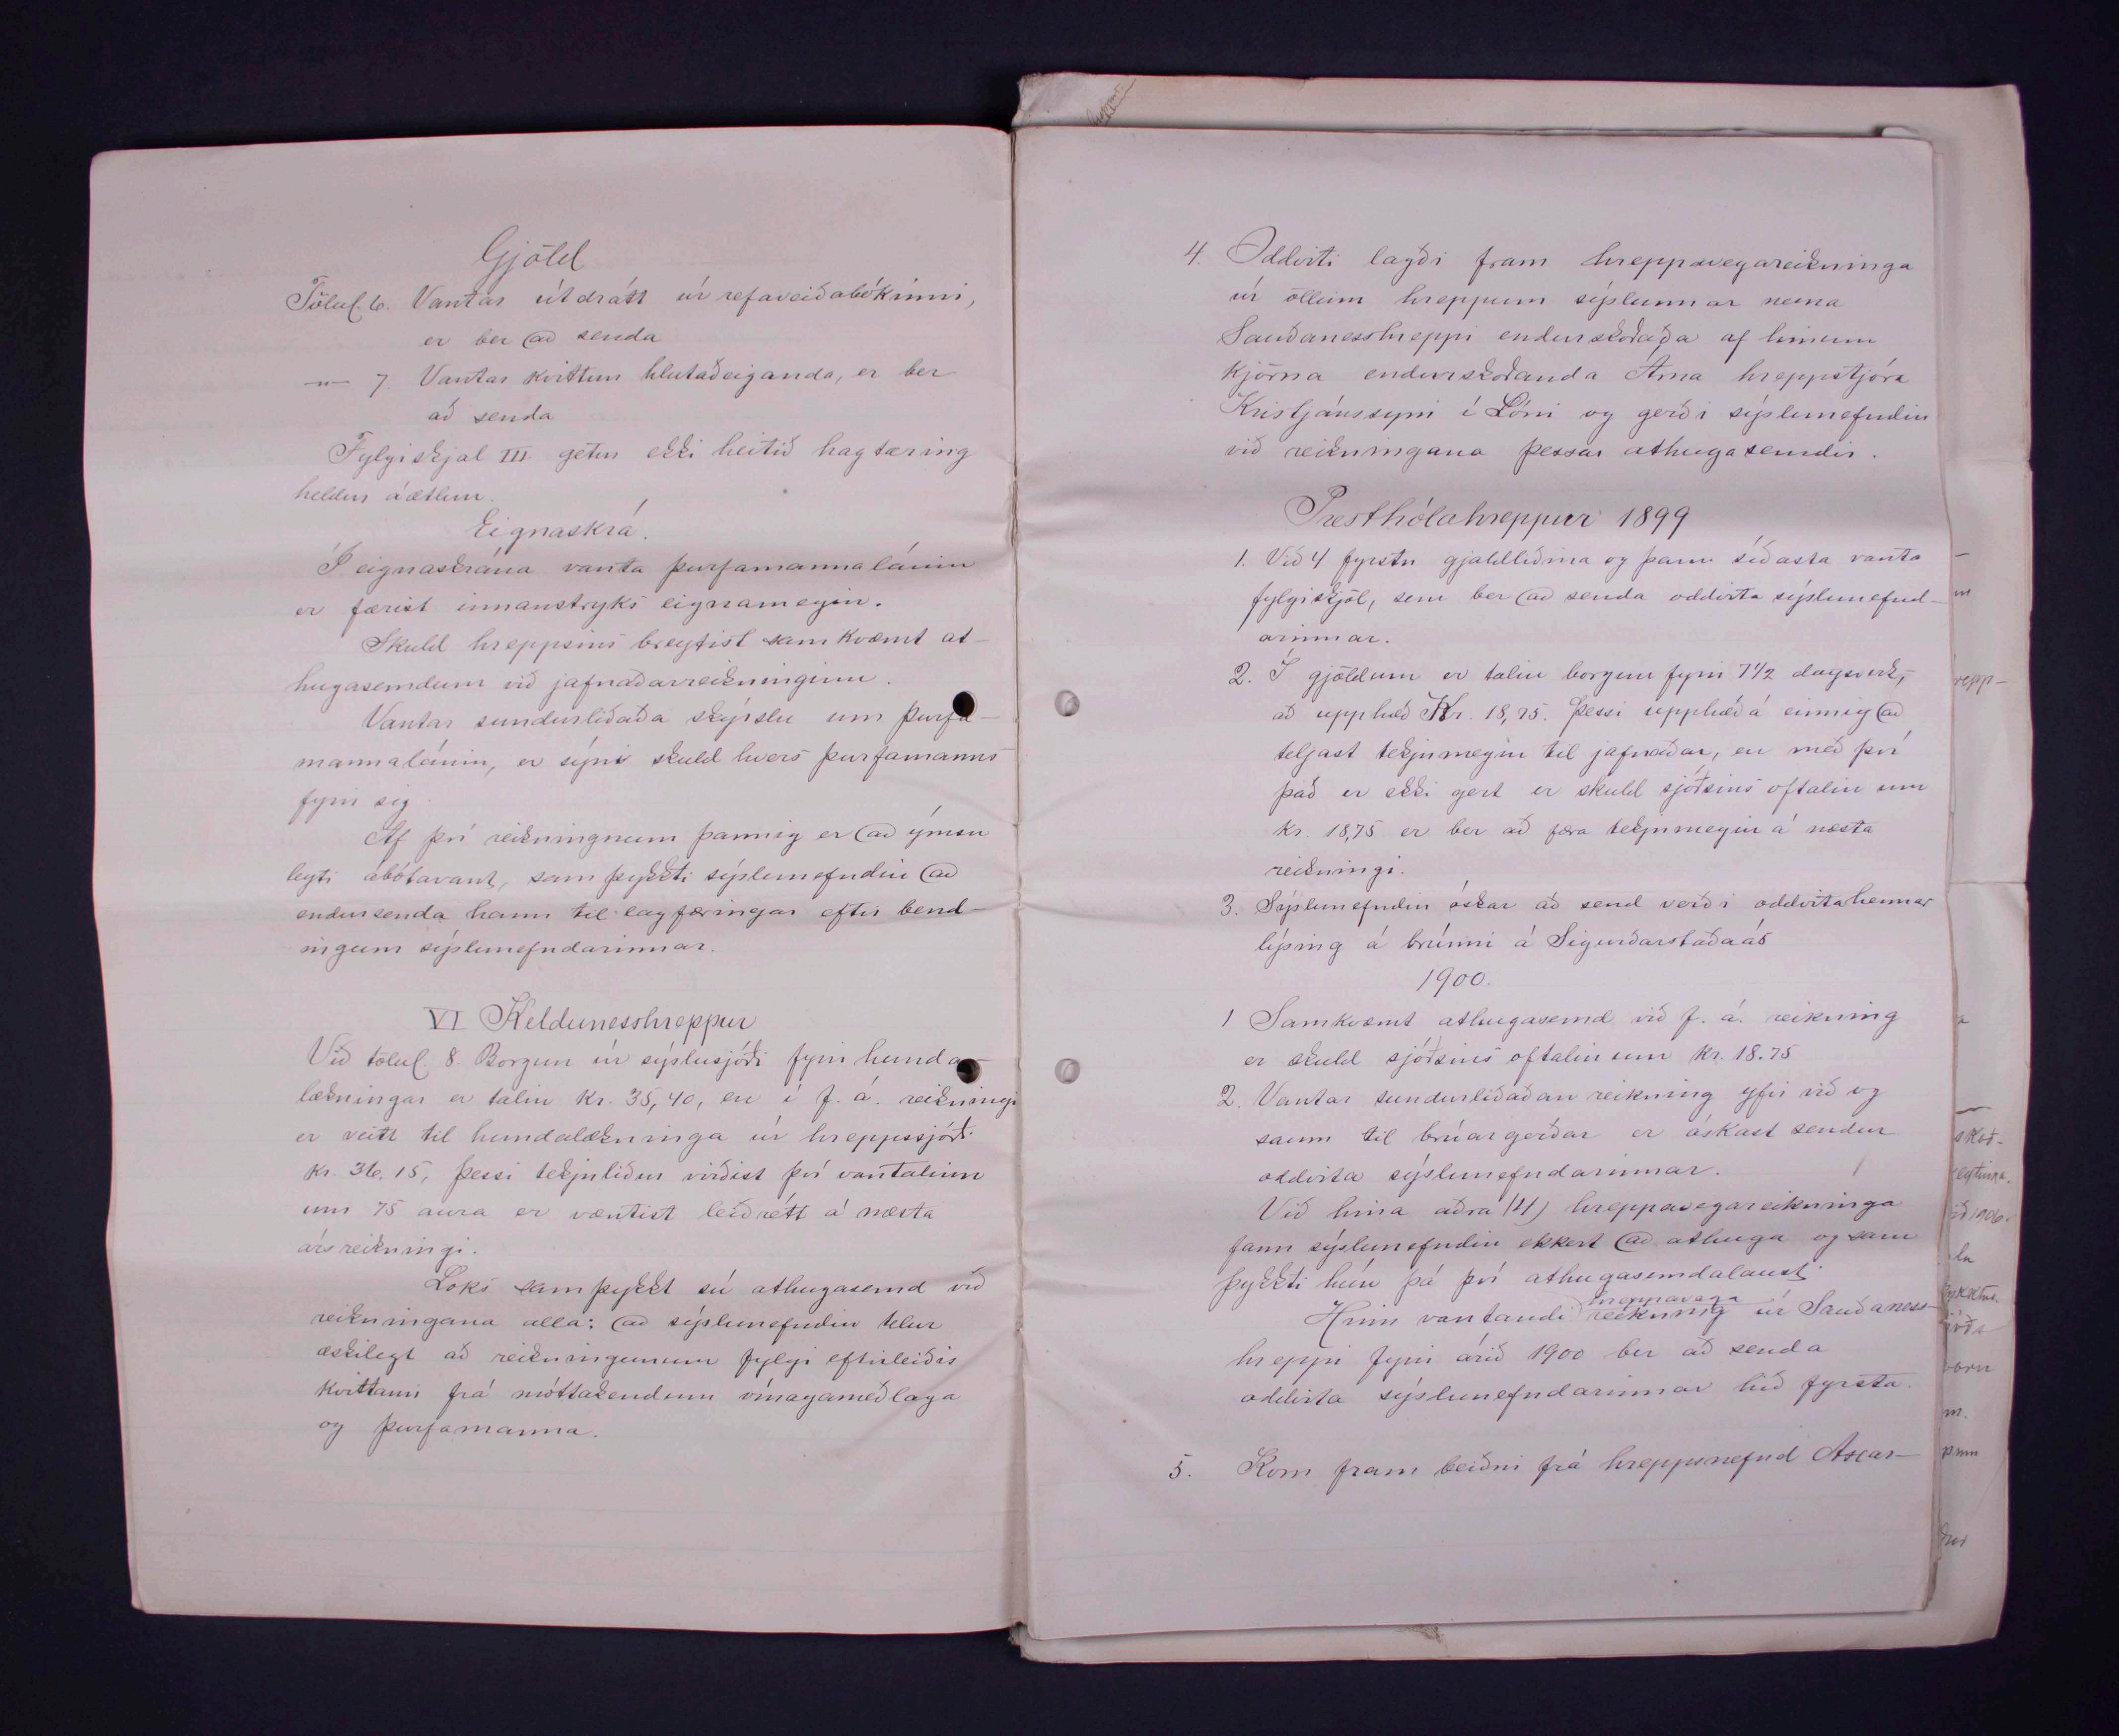 Gjöld
Tölul. 6. Vantar útdrátt úr refaveiðabókinni,
er ber að senda
—"— 7. Vantar kvittun hlutaðeiganda, er ber
að senda
Fylgiskjal III getur ekki heitið hagtæring
heldur áætlun.
Eignaskrá.
Í eignaskrána vanta þurfamannalánin
er færist innanstryks eignamegin.
Skuld hreppsins breytist samkvæmt at-
hugasemdum við jafnaðarreikninginn.
Vantar sundurliðaða skýrslu um þurfa-
mannalánin, er sýni skuld hvers þurfamanns
fyrir sig.
Af því reikningnum þannig er að ýmsu
leyti ábótavant, samþykkti sýslunefndin að
endursenda hann til lagfæringar eftir bend-
ingum sýslunefndarinnar.
VI Keldunesshreppur
Við tölul. 8. Borgun úr sýslusjóði fyrir hunda-
lækningar er talin kr. 35,40, en í f. á. reikningi
er veitt til hundalækninga úr hreppssjóði
kr. 36.15, þessi tekjuliður virðist því vantalinn
um 75 aura er væntist leiðrétt á næsta
ársreikningi.
Loks samþykkt sú athugasemd við
reikningana alla: að sýslunefndin telur
æskilegt að reikningunum fylgi eftirleiðis
kvittanir frá móttakendum ómagameðlaga
og þurfamanna.
4. Oddviti lagði fram hreppavegareikninga
úr öllum hreppum sýslunnar nema
Sauðanesshreppi endurskoðaða af hinum
kjörna endurskoðanda Árna hreppstjóra
Kristjánssyni í Lóni og gerði sýslunefndin
við reikningana þessar athugasemdir.
Presthólahreppur 1899
1. Við 4 fyrstu gjaldliðina og þann síðasta vanta
fylgiskjöl, sem ber að senda oddvita sýslunefnd-
arinnar.
2. Í gjöldum er talin borgun fyrir 7 1/2 dagsverk,
að upphæð Kr. 18,75. Þessi upphæð á einnig að
teljast tekjumegin til jafnaðar, en með því
það er ekki gert er skuld sjóðsins oftalin um
kr. 18,75 er ber að færa tekjumegin á næsta
reikningi.
3. Sýslunefndin óskar að send verði oddvita hennar
lýsing á brúnni á Sigurðarstaðaás
1900.
1 Samkvæmt athugasemd við f. á. reikning
er skuld sjóðsins oftalin um kr. 18.75
2. Vantar sundurliðaðan reikning yfir við og
saum til brúargerðar er óskast sendur
oddvita sýslunefndarinnar.
Við hina aðra (4) hreppavegareikninga
fann sýslunefndin ekkert að athuga og sam
þykkti hún þá því athugasemdalaust.
hreppavega
Hinn vantandi reikning úr Sauðaness-
hreppi fyrir árið 1900 ber að senda
oddvita sýslunefndarinnar hið fyrsta.
5. Kom fram beiðni frá hreppsnefnd Axar-